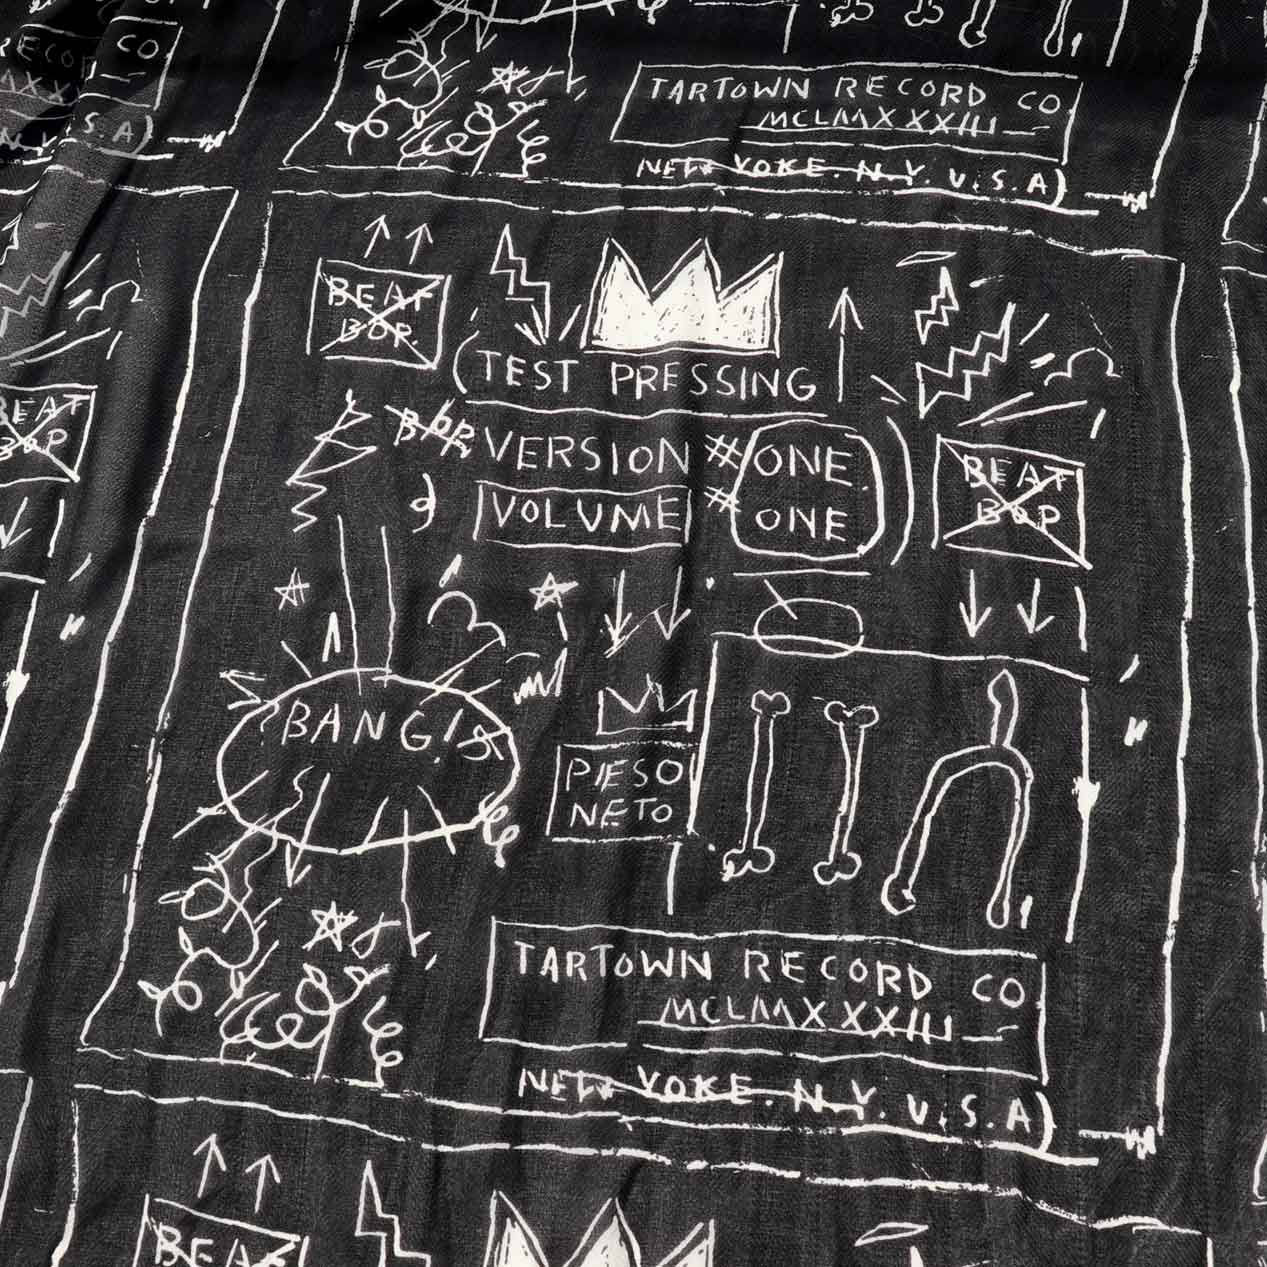 RECOR CO
S.A)
TARTOWN RECORD CO
MCLMXXXXIII
NEW YOKE. N.Y. U.S.A)
BEAT
BOP.
(TEST PRESSING
BOP VERSION # ONE
VOLUME # ONE
BEAT
BOP
BEAT
BOP
BANG!
PIESO
NETO
TARTOWN RECORD CO
MCLMXXXXIII
NEW YOKE. N.Y. U.S.A)
BEAT